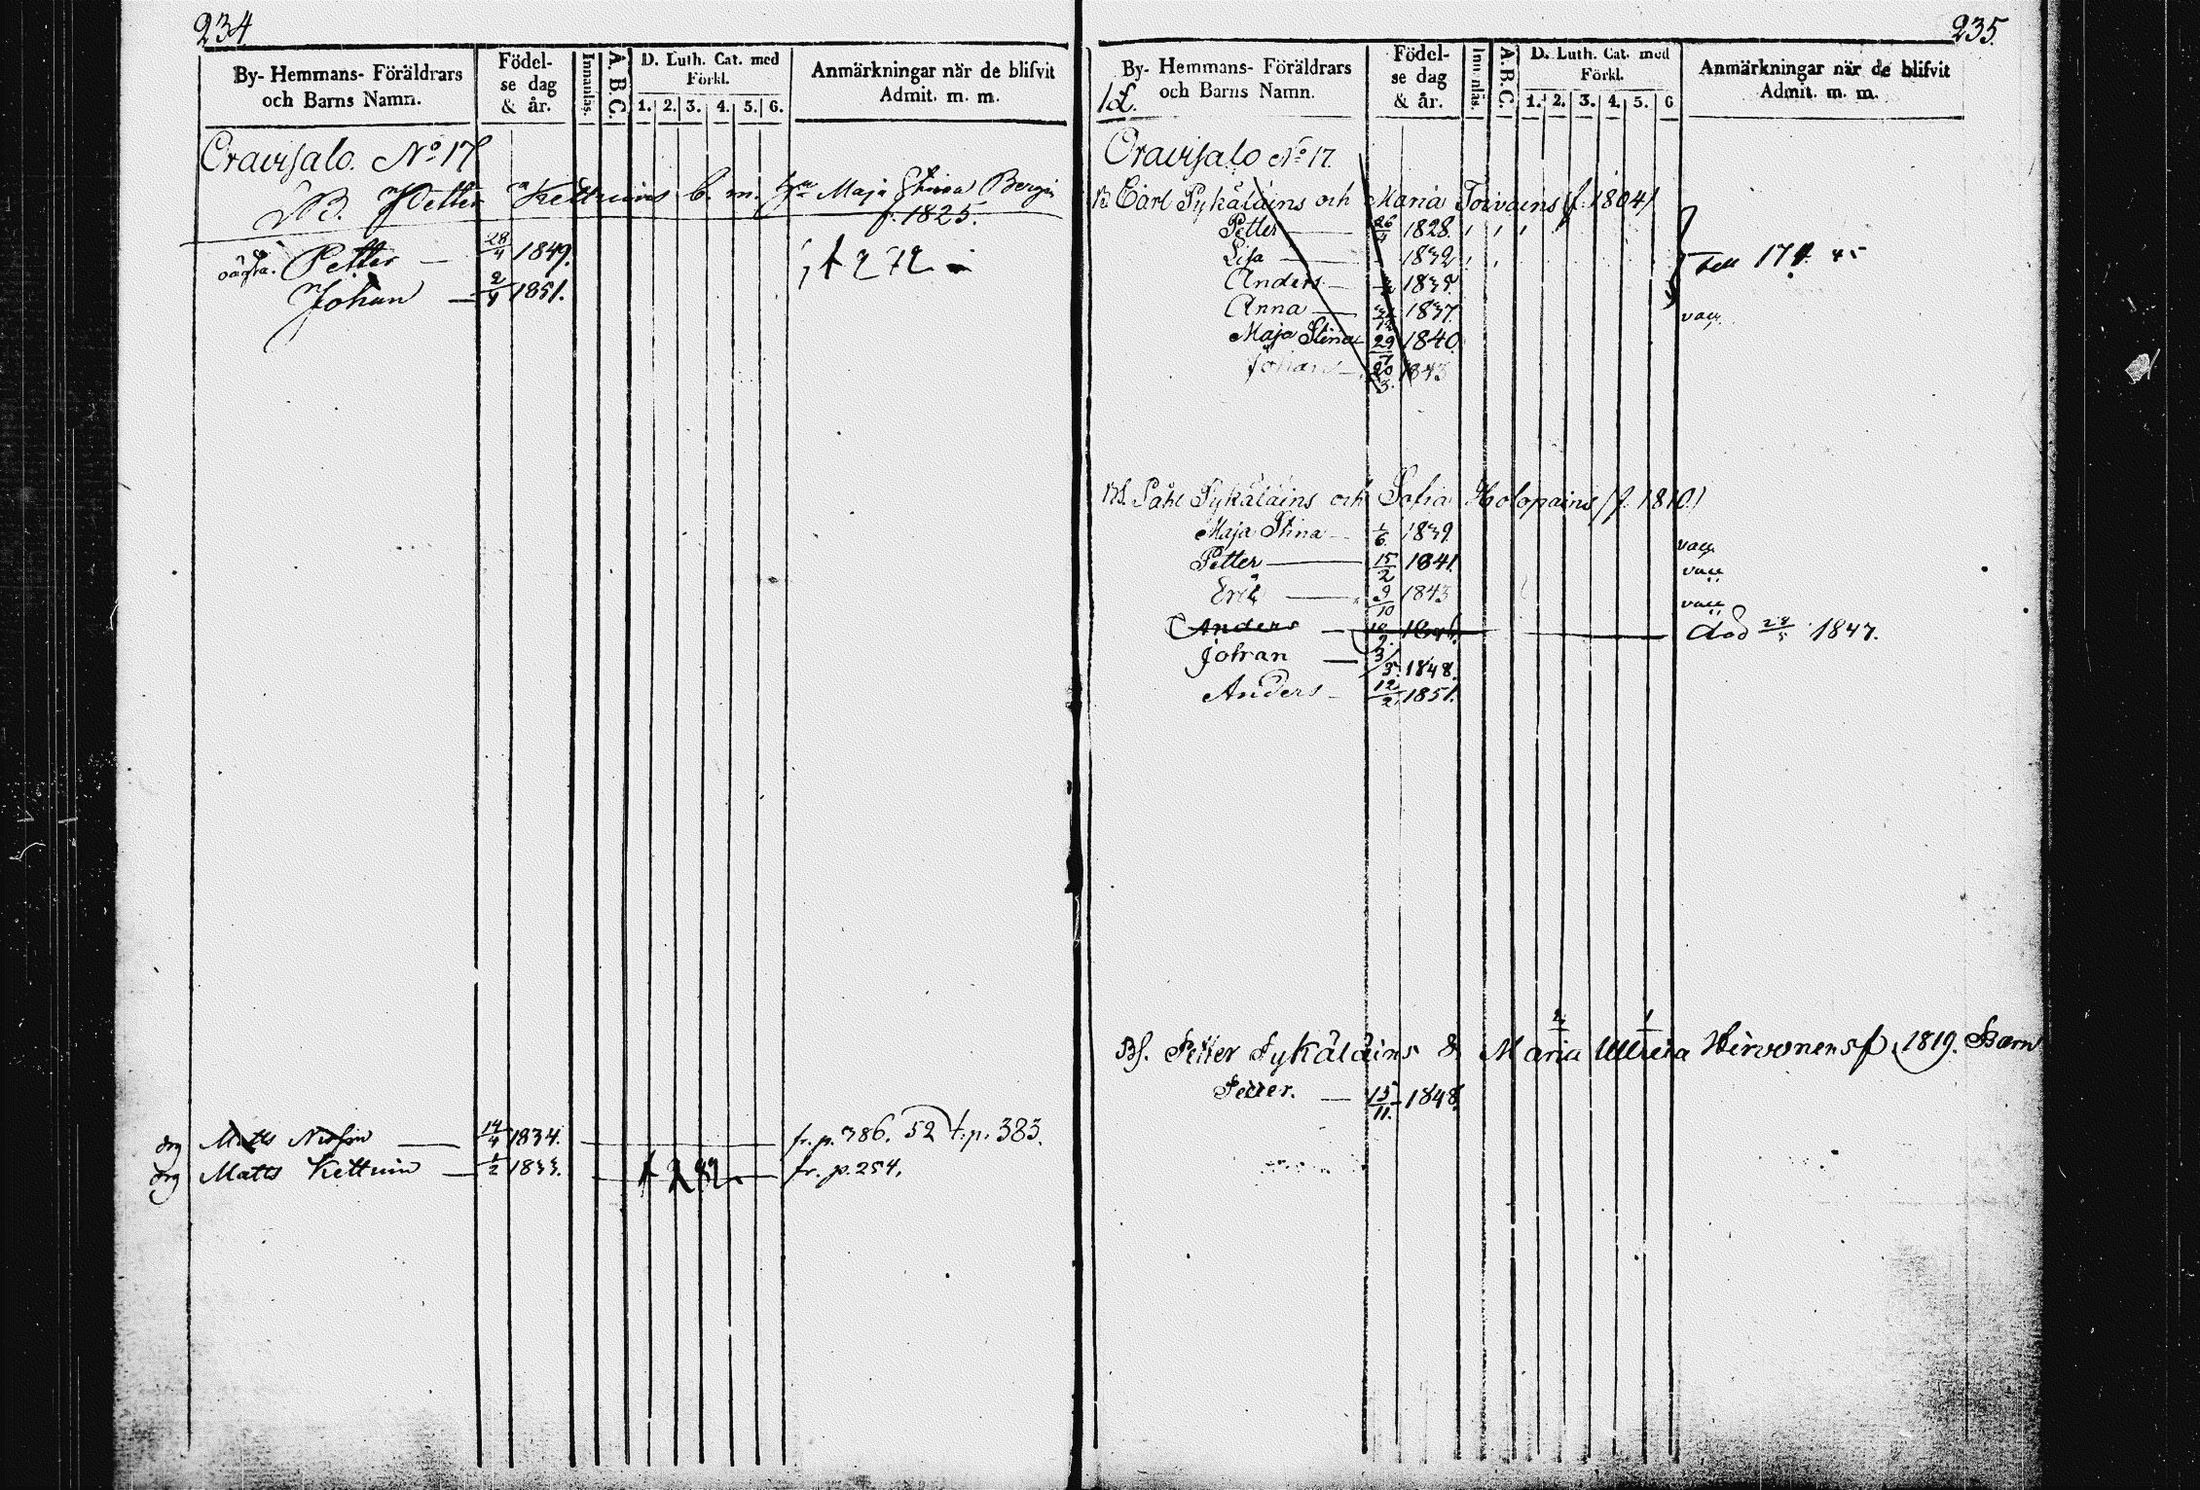 234
By- Hemmans- Föräldrars och Barns Namn.
Födel- se dag & år.
Innanläs.
A.B.C.
D. Luth. Cat. med Förkl.
1. 2. 3. 4. 5. 6.
Anmärkningar när de blifvit Admit. m. m.
Oravisalo. No 17
Petter Kettuins b. m. Maja Stina
f. 1825.
Petter — 28/4 1849. 272
Johan — 2/4 1851.
drg Matts — 14/4 1834. — fr. p. 386. 52 t. p. 383.
drg Matts Kettuin — 1/2 1833. — fr. p. 254.
235.
By- Hemmans- Föräldrars och Barns Namn.
Födel- se dag & år.
Innanläs.
A.B.C.
D. Luth. Cat. med Förkl.
1. 2. 3. 4. 5. 6
Anmärkningar när de blifvit Admit. m. m.
Oravisalo No 17.
Carl Pykäläins och Maria Toivains (f. 1804)
Petter — 26/4 1828.
Lisa — 1832
Anders — 1835
Anna — 1837. vacc.
Maja Stina — 29/7 1840.
Johan — 20/3. 1843
Påhl Pykäläins och Sofia Holopains (f. 1810.)
Maja Stina — 1/6 1839 vacc.
Petter — 15/2 1841. vacc
Erik — 9/10 1843 vacc
Anders — död 1847.
Johan — 3/5. 1848.
Anders — 12/2 1851.
Bf. Petter Pykäläins & Maria Ulrica Hirvonens f. 1819. Barn
Petter. — 15/11. 1848.